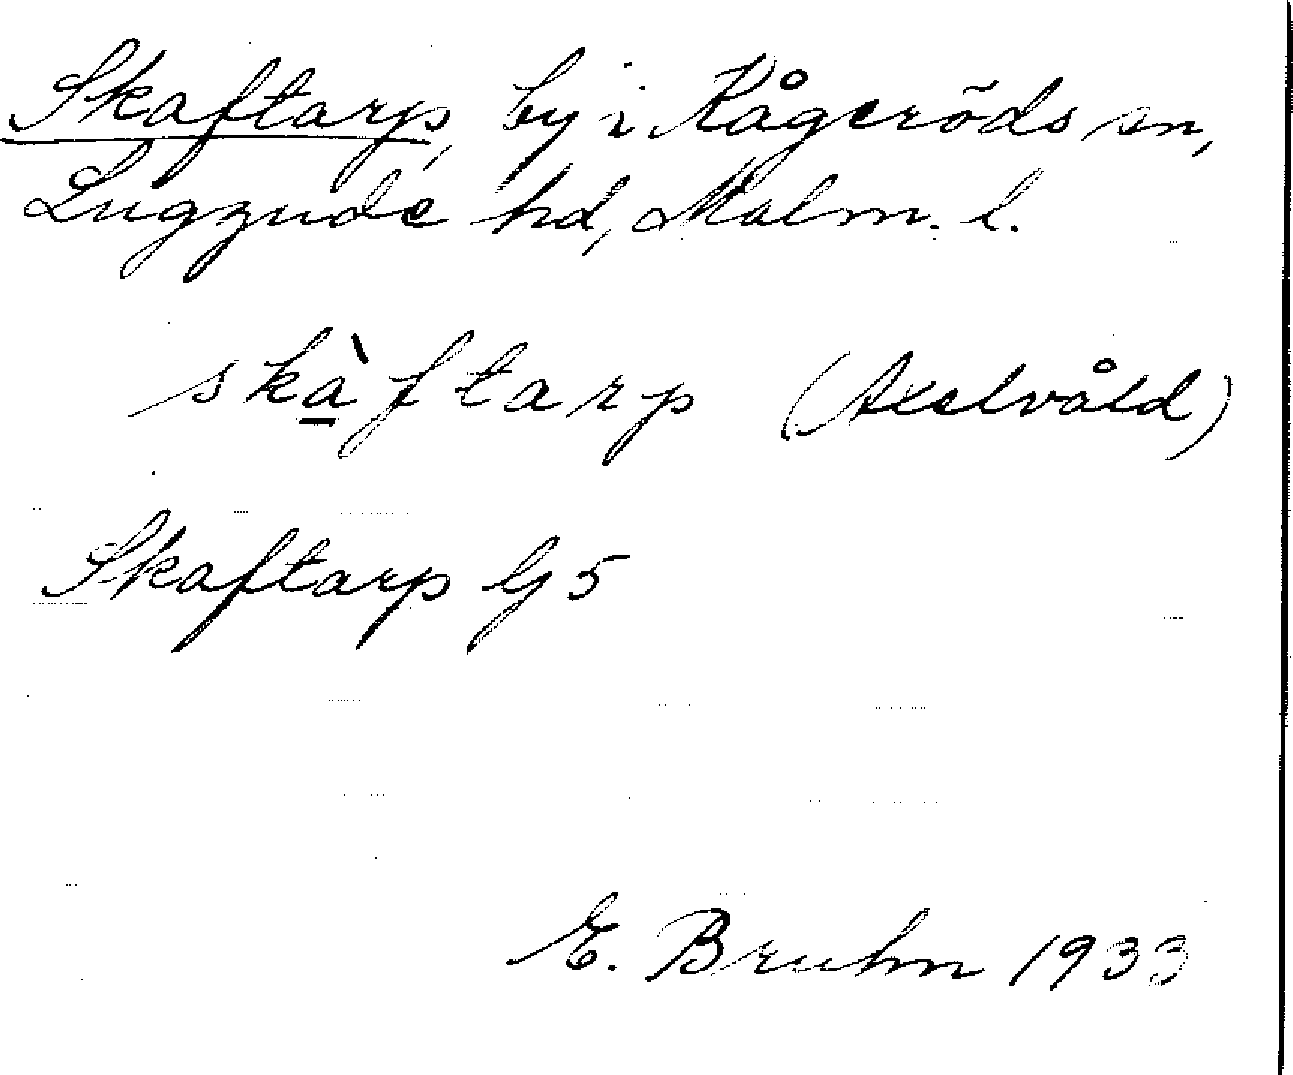 Skaftarp, by i Kågeröds sn,
Luggude hd, Malm. l.
skà̲ftarp (Axelvåld)
Skaftarp G5
E. Bruhn 1933